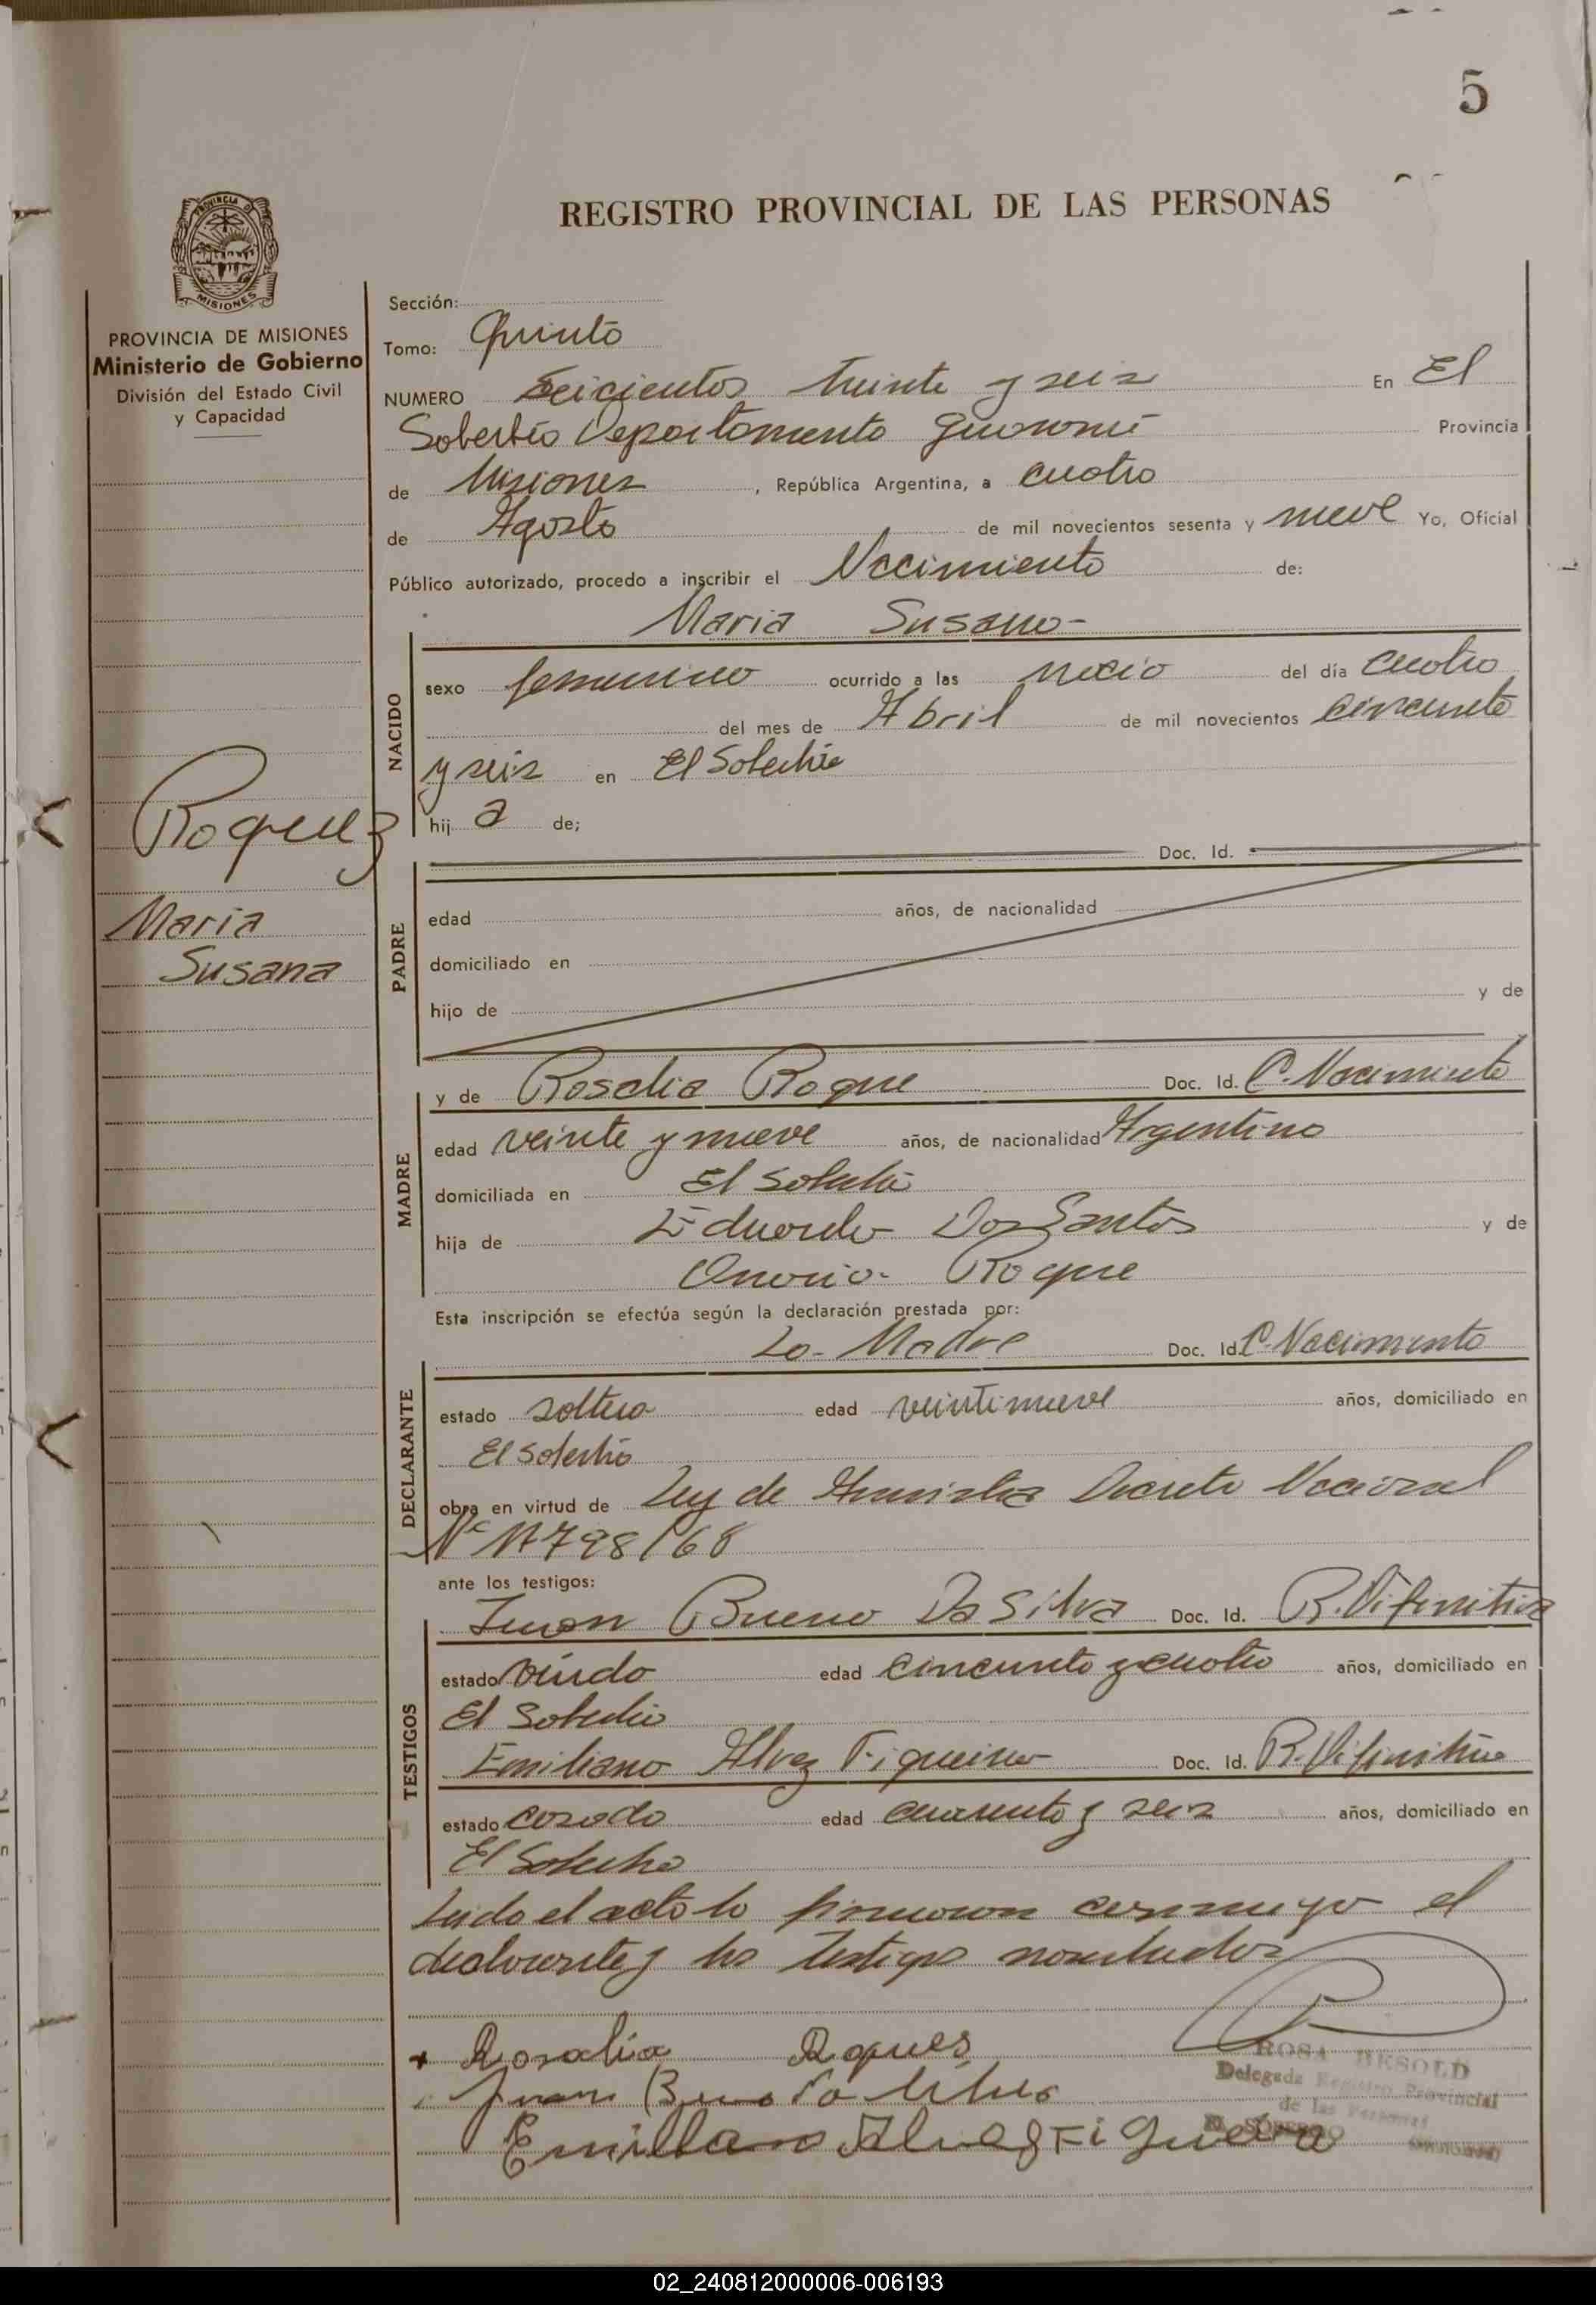 5
REGISTRO PROVINCIAL DE LAS PERSONAS
PROVINCIA DE MISIONES
PROVINCIA DE MISIONES
Ministerio de Gobierno
División del Estado Civil
y Capacidad
Roquez
Maria
Susana
Sección:
Tomo: Quinto
NUMERO Seicientos treinta y seis En El
Soberbio Departamento Guaraní Provincia
de Misiones, República Argentina, a cuatro
de Agosto de mil novecientos sesenta y nueve Yo, Oficial
Público autorizado, procedo a inscribir el Nacimiento de:
Maria Susana-
NACIDO
sexo femenino ocurrido a las del día cuatro
del mes de Abril de mil novecientos cincuenta
y seis en El Soberbio
hij a de;
PADRE
Doc. Id.
edad años, de nacionalidad
domiciliado en
hijo de y de
MADRE
y de Rosalia Roque Doc. Id. C. Nacimiento
edad veinte y nueve años, de nacionalidad Argentina
domiciliada en El Soberbio
hija de Eduardo Dos Santos y de
Roque
Esta inscripción se efectúa según la declaración prestada por:
La Madre Doc. Id. C. Nacimiento
DECLARANTE
estado soltera edad veintinueve años, domiciliado en
El Soberbio
obra en virtud de Ley de Amnistia Decreto Nacional
Nº 17798/68
ante los testigos:
TESTIGOS
Juan Bueno Da Silva Doc. Id. R. Difinitiva
estado viudo edad cincuenta y cuatro años, domiciliado en
El Soberbio
Emiliano Alvez Figueira Doc. Id. R. Difinitiva
estado casado edad cuarenta y seis años, domiciliado en
El Soberbio
Leido el acta la firmaron conmigo el
declarante y los testigos nombrados
Rosalia Roques
Juan Bueno da Silva
Emiliano Alves Figueira
ROSA BESOLD
Delegada Registro Provincial
de las Personas
EL SOBERBIO
02_240812000006-006193